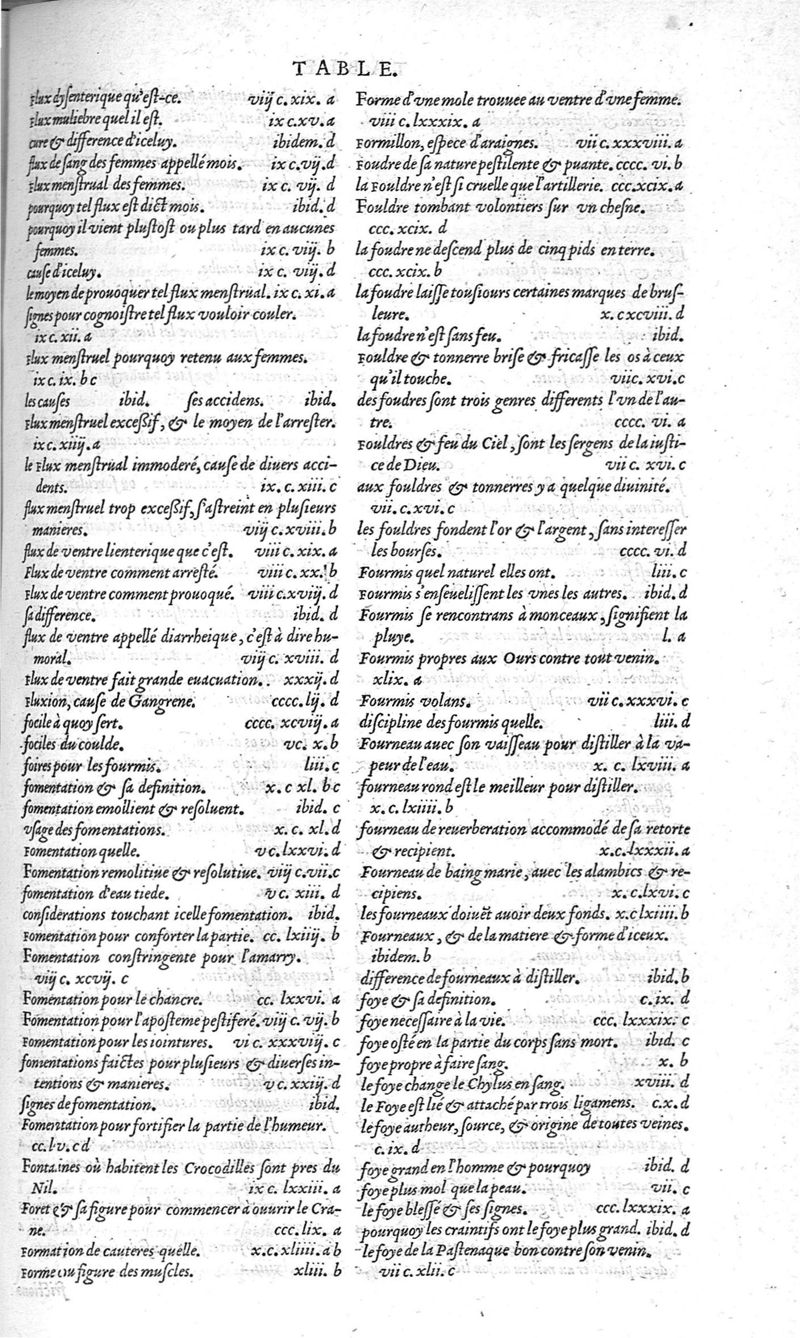 TABLE.
Flux dysenterique qu'est-ce. viij c. xix. a
Flux muliebre quel il est. ix c. xv. a
cure & difference d'iceluy. ibidem. d
flux de sang des femmes appellé mois. ix c. vij. d
Flux menstrual des femmes. ix c. vij. d
pourquoy tel flux est dict mois. ibid. d
pourquoy il vient plustost ou plus tard en aucunes
femmes. ix c. viij. b
cause d'iceluy. ix c. viij. d
le moyen de prouoquer tel flux menstrual. ix c. xi. a
signes pour cognoistre tel flux vouloir couler.
ix c. xii. a
Flux menstruel pourquoy retenu aux femmes.
ix c. ix. b c
les causes ibid. ses accidens. ibid.
Flux menstruel excessif, & le moyen de l'arrester.
ix c. xiij. a
le Flux menstrual immoderé, cause de diuers acci-
dents. ix. c. xiii. c
flux menstruel trop excessif, s'astreint en plusieurs
manieres. viij c. xviii. b
flux de ventre lienterique que c'est. viii c. xix. a
Flux de ventre comment arresté. viii c. xx. b
Flux de ventre comment prouoqué. viii c. xvij. d
sa difference. ibid. d
flux de ventre appellé diarrheique, c'est à dire hu-
moral. viij c. xviii. d
Flux de ventre fait grande euacuation. xxxij. d
Fluxion, cause de Gangrene. cccc. lij. d
focile à quoy sert. cccc. xcviij. a
fociles du coulde. vc. x. b
foires pour les fourmis. liii. c
fomentation & sa definition. x. c xl. b c
fomentation emollient & resoluent. ibid. c
vsage des fomentations. x. c. xl. d
Fomentation quelle. v c. lxxvi. d
Fomentation remolitiue & resolutiue. viij c. vii. c
fomentation d'eau tiede. v c. xiii. d
considerations touchant icelle fomentation. ibid.
Fomentation pour conforter la partie. cc. lxiiij. b
Fomentation constringente pour l'amarry.
viij c. xcvij. c
Fomentation pour le chancre. cc. lxxvi. a
Fomentation pour l'aposteme pestiferé. viij c. vij. b
Fomentation pour les iointures. vi c. xxxvij. c
fomentations faictes pour plusieurs & diuerses in-
tentions & manieres. v c. xxij. d
signes de fomentation. ibid.
Fomentation pour fortifier la partie de l'humeur.
cc. lv. c d
Fontaines où habitent les Crocodilles sont pres du
Nil. ix c. lxxiii. a
Foret & sa figure pour commencer à ouurir le Cra-
ne. ccc. lix. a
Formation de cauteres quelle. x. c. xliiii. a b
Forme ou figure des muscles. xliii. b
Forme d'vne mole trouuee au ventre d'vne femme.
viii c. lxxxix. a
Formillon, espece d'araignes. vii c. xxxviii. a
Foudre de sa nature pestilente & puante. cccc. vi. b
la Fouldre n'est si cruelle que l'artillerie. ccc. xcix. a
Fouldre tombant volontiers sur vn chesne.
ccc. xcix. d
la foudre ne descend plus de cinq pids en terre.
ccc. xcix. b
la foudre laisse tousiours certaines marques de brus-
leure. x. c xcviii. d
la foudre n'est sans feu. ibid.
Fouldre & tonnerre brise & fricasse les os à ceux
qu'il touche. viic. xvi. c
des foudres sont trois genres differents l'vn de l'au-
tre. cccc. vi. a
Fouldres & feu du Ciel, sont les sergens de la iusti-
ce de Dieu. vii c. xvi. c
aux fouldres & tonnerres y a quelque diuinité.
vii. c. xvi. c
les fouldres fondent l'or & l'argent, sans interesser
les bourses. cccc. vi. d
Fourmis quel naturel elles ont. liii. c
Fourmis s'enseuelissent les vnes les autres. ibid. d
Fourmis se rencontrans à monceaux, signifient la
pluye. l. a
Fourmis propres aux Ours contre tout venin.
xlix. a
Fourmis volans. vii c. xxxvi. c
discipline des fourmis quelle. liii. d
Fourneau auec son vaisseau pour distiller à la va-
peur de l'eau. x. c. lxviii. a
fourneau rond est le meilleur pour distiller.
x. c. lxiiii. b
fourneau de reuerberation accommodé de sa retorte
& recipient. x. c. lxxxii. a
Fourneau de baing marie, auec les alambics & re-
cipiens. x. c. lxvi. c
les fourneaux doiuēt auoir deux fonds. x. c lxiiii. b
Fourneaux, & de la matiere & forme d'iceux.
ibidem. b
difference de fourneaux à distiller. ibid. b
foye & sa definition. c. ix. d
foye necessaire à la vie. ccc. lxxxix. c
foye osté en la partie du corps sans mort. ibid. c
foye propre à faire sang. x. b
le foye change le Chylus en sang. xviii. d
le Foye est lié & attaché par trois ligamens. c. x. d
le foye autheur, source, & origine de toutes veines.
c. ix. d
foye grand en l'homme & pourquoy ibid. d
foye plus mol que la peau. vii. c
le foye blessé & ses signes. ccc. lxxxix. a
pourquoy les craintifs ont le foye plus grand. ibid. d
le foye de la Pastenaque bon contre son venin.
vii c. xlii. c